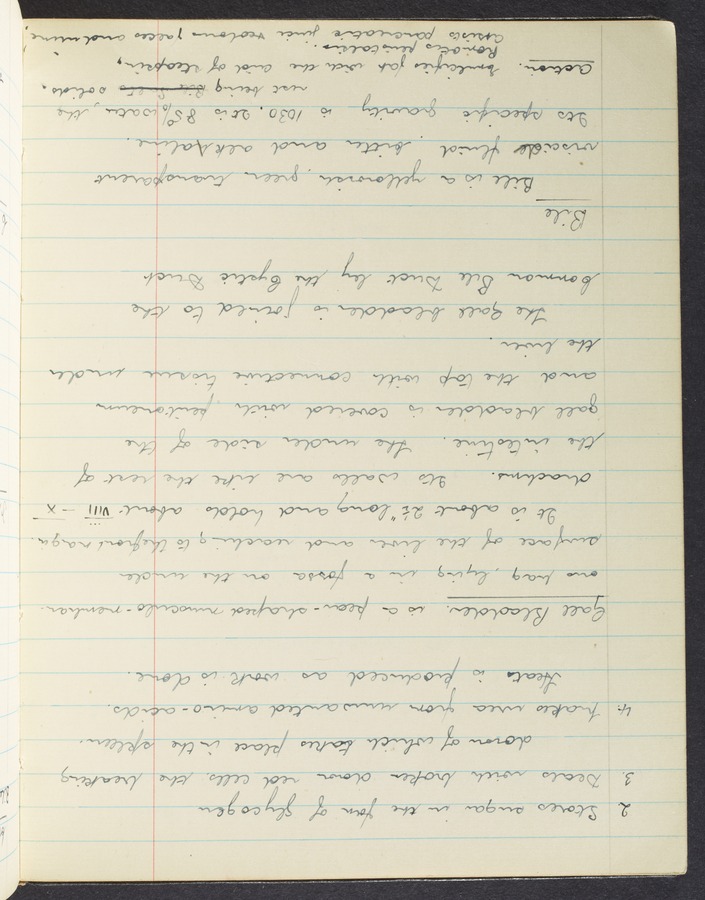 2 Stores sugar in the form of glycogen
3. Deals with broken down red cells. the breaking
down of which takes place in the spleen.
4. Makes urea from unwanted amino-acids.
Heat is produced as work is done.
Gall Bladder. is a pear-shaped musculo-membran-
ous bag, lying in a fossa on the under
surface of the liver and reaching to the front marga
It is about 2½" long and holds about VIII - X
drachms. Its walls are like the rest of
the intestine. The under side of the
gall bladder is covered with peritoneum
and the top with connective tissue under
the liver.
The gall bladder is joined to the
common Bile Duct by the Cystic Duct
Bile
Bile is a yellowish green, transparent
viscid fluid, bitter and alkaline.
Its specific gravity is 1030. It is 85% water, the
rest being solids.
Action. Emulsifies fat with the aid of steapsin,
Promotes peristalsis.
assists pancreatic juice colours faeces and urine,